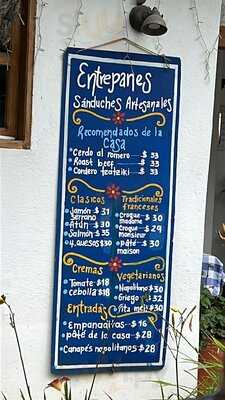 Entrepanes
Sánduches Artesanales
Recomendados de la
Casa
Cerdo al romero - $ 33
Roast beef - $ 33
Cordero tzatziki - $ 33
Clasicos
Jamón $ 31
Serrano
Atún $ 30
Salmón $ 35
4 quesos $ 30
Tradicionales
franceses
Croque $ 30
madame
Croque $ 29
monsieur
pâté $ 30
maison
Cremas
Tomate $ 18
cebolla $ 18
Vegetarianos
Napolitano $ 30
Griego $ 32
Vita $ 30
Entradas
Empanaditas - $ 16
pâté de la casa $ 28
Canapés napolitanos $ 28